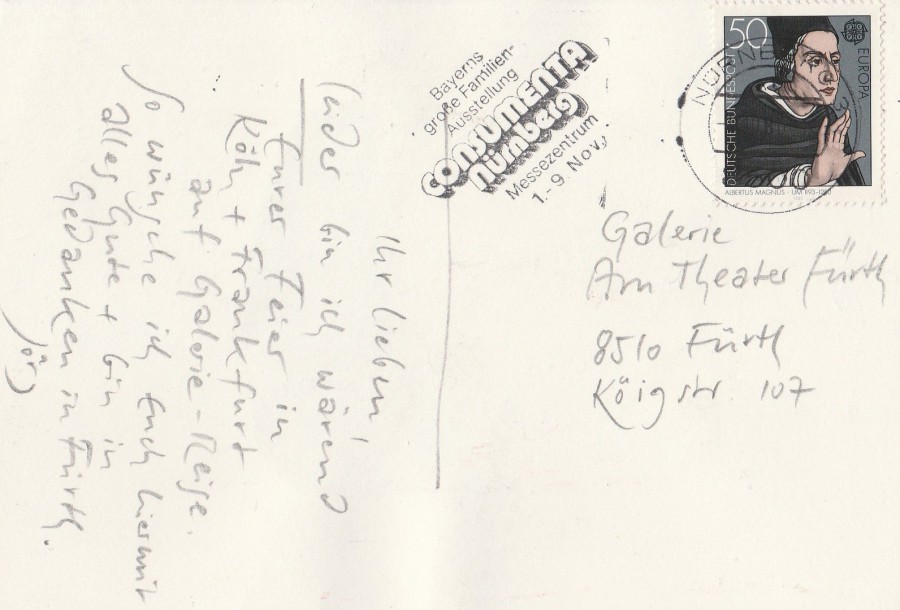 Ihr lieben
leider bin ich wärend
Eurer Feier in
Köln + Frankfurt
auf Galerie-Reise.
So wünsche ich Euch hiermit
alles Gute + bin in
Gedanken in Fürth.
Bayerns
große Familien-
Ausstellung
CONSUMENTA
Nürnberg
Messezentrum
1.-9. Nov.
NÜRNBE
50
DEUTSCHE BUNDESPOST
EUROPA
CEPT
ALBERTUS MAGNUS · UM 1193-1280
Galerie
Am Theater Fürth
8510 Fürth
Köigstr. 107